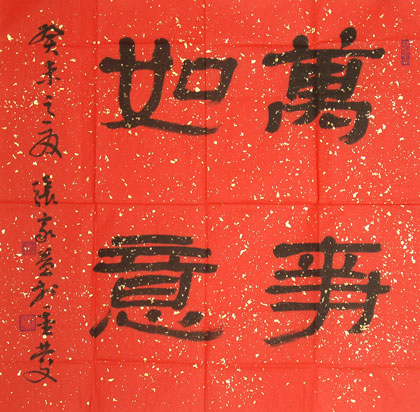 萬事
如意
癸未之夏 張家